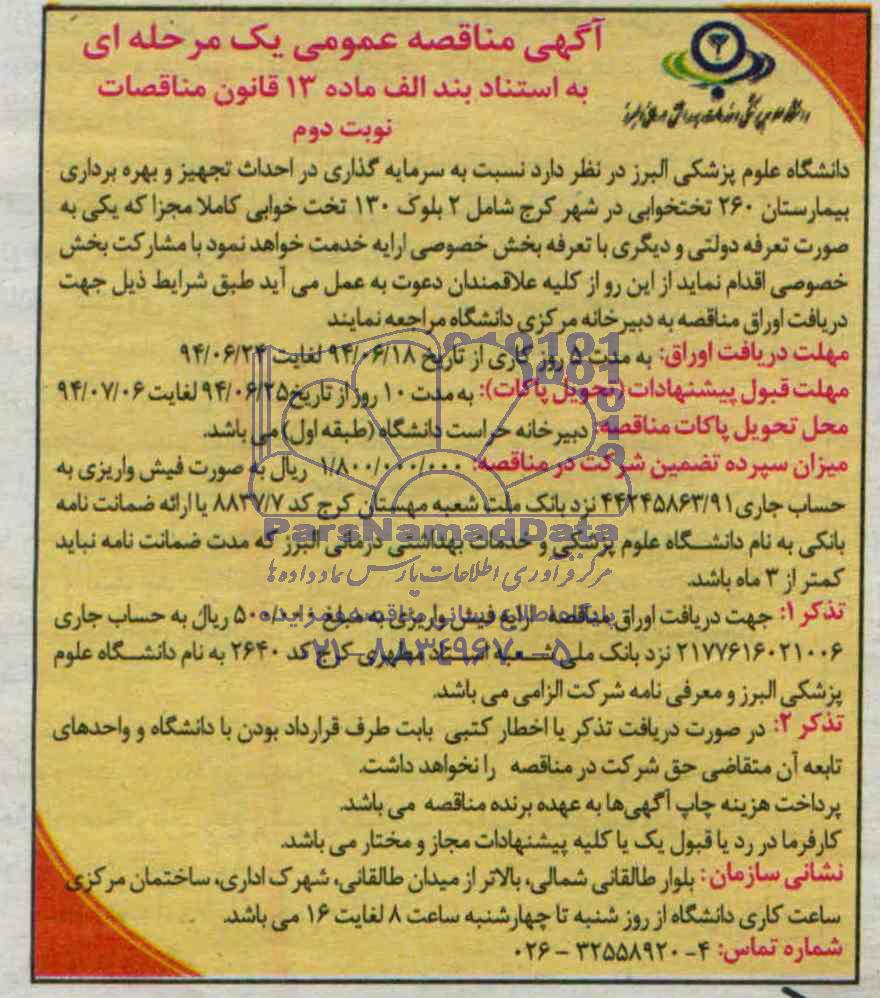 آگهی مناقصه عمومی یک مرحله ای
به استناد بند الف ماده ۱۳ قانون مناقصات
نوبت دوم
دانشگاه علوم پزشکی البرز در نظر دارد نسبت به سرمایه گذاری در احداث تجهیز و بهره برداری
بیمارستان ۲۶۰ تختخوابی در شهر کرج شامل ۲ بلوک ۱۳۰ تخت خوابی کاملا مجزا که یکی به
صورت تعرفه دولتی و دیگری با تعرفه بخش خصوصی ارایه خدمت خواهد نمود با مشارکت بخش
خصوصی اقدام نماید از این رو از کلیه علاقمندان دعوت به عمل می آید طبق شرایط ذیل جهت
دریافت اوراق مناقصه به دبیرخانه مرکزی دانشگاه مراجعه نمایند
مهلت دریافت اوراق: به مدت ۵ روز کاری از تاریخ ۹۴/۰۶/۱۸ لغایت ۹۴/۰۶/۲۴
مهلت قبول پیشنهادات (تحویل پاکات): به مدت ۱۰ روز از تاریخ ۹۴/۰۶/۲۵ لغایت ۹۴/۰۷/۰۶
محل تحویل پاکات مناقصه: دبیرخانه حراست دانشگاه (طبقه اول) می باشد.
میزان سپرده تضمین شرکت در مناقصه: ۱/۸۰۰/۰۰۰/۰۰۰ ریال به صورت فیش واریزی به
حساب جاری ۴۴۲۴۵۸۶۳/۹۱ نزد بانک ملت شعبه مهستان کرج کد ۸۸۳۷/۷ یا ارائه ضمانت نامه
ParsNamadData
بانکی به نام دانشگاه علوم پزشکی و خدمات بهداشتی درمانی البرز که مدت ضمانت نامه نباید
مرکز فرآوری اطلاعات پارس نماد داده ها
کمتر از ۳ ماه باشد.
تذکر ۱: جهت دریافت اوراق مناقصه ارایه فیش واریزی به مبلغ ۵۰۰/۰۰۰ ریال به حساب جاری
۲۱۷۷۶۱۶۰۲۱۰۰۶ نزد بانک ملی شعبه استاد مطهری کرج کد ۲۶۴۰ به نام دانشگاه علوم
۰۲۱-۸۸۳۴۹۶۷۰-۵
پزشکی البرز و معرفی نامه شرکت الزامی می باشد.
تذکر ۲: در صورت دریافت تذکر یا اخطار کتبی بابت طرف قرارداد بودن با دانشگاه و واحدهای
تابعه آن متقاضی حق شرکت در مناقصه را نخواهد داشت.
پرداخت هزینه چاپ آگهی‌ها به عهده برنده مناقصه می باشد.
کارفرما در رد یا قبول یک یا کلیه پیشنهادات مجاز و مختار می باشد.
نشانی سازمان: بلوار طالقانی شمالی، بالاتر از میدان طالقانی، شهرک اداری، ساختمان مرکزی
ساعت کاری دانشگاه از روز شنبه تا چهارشنبه ساعت ۸ لغایت ۱۶ می باشد.
شماره تماس: ۴-۳۲۵۵۸۹۲۰-۰۲۶